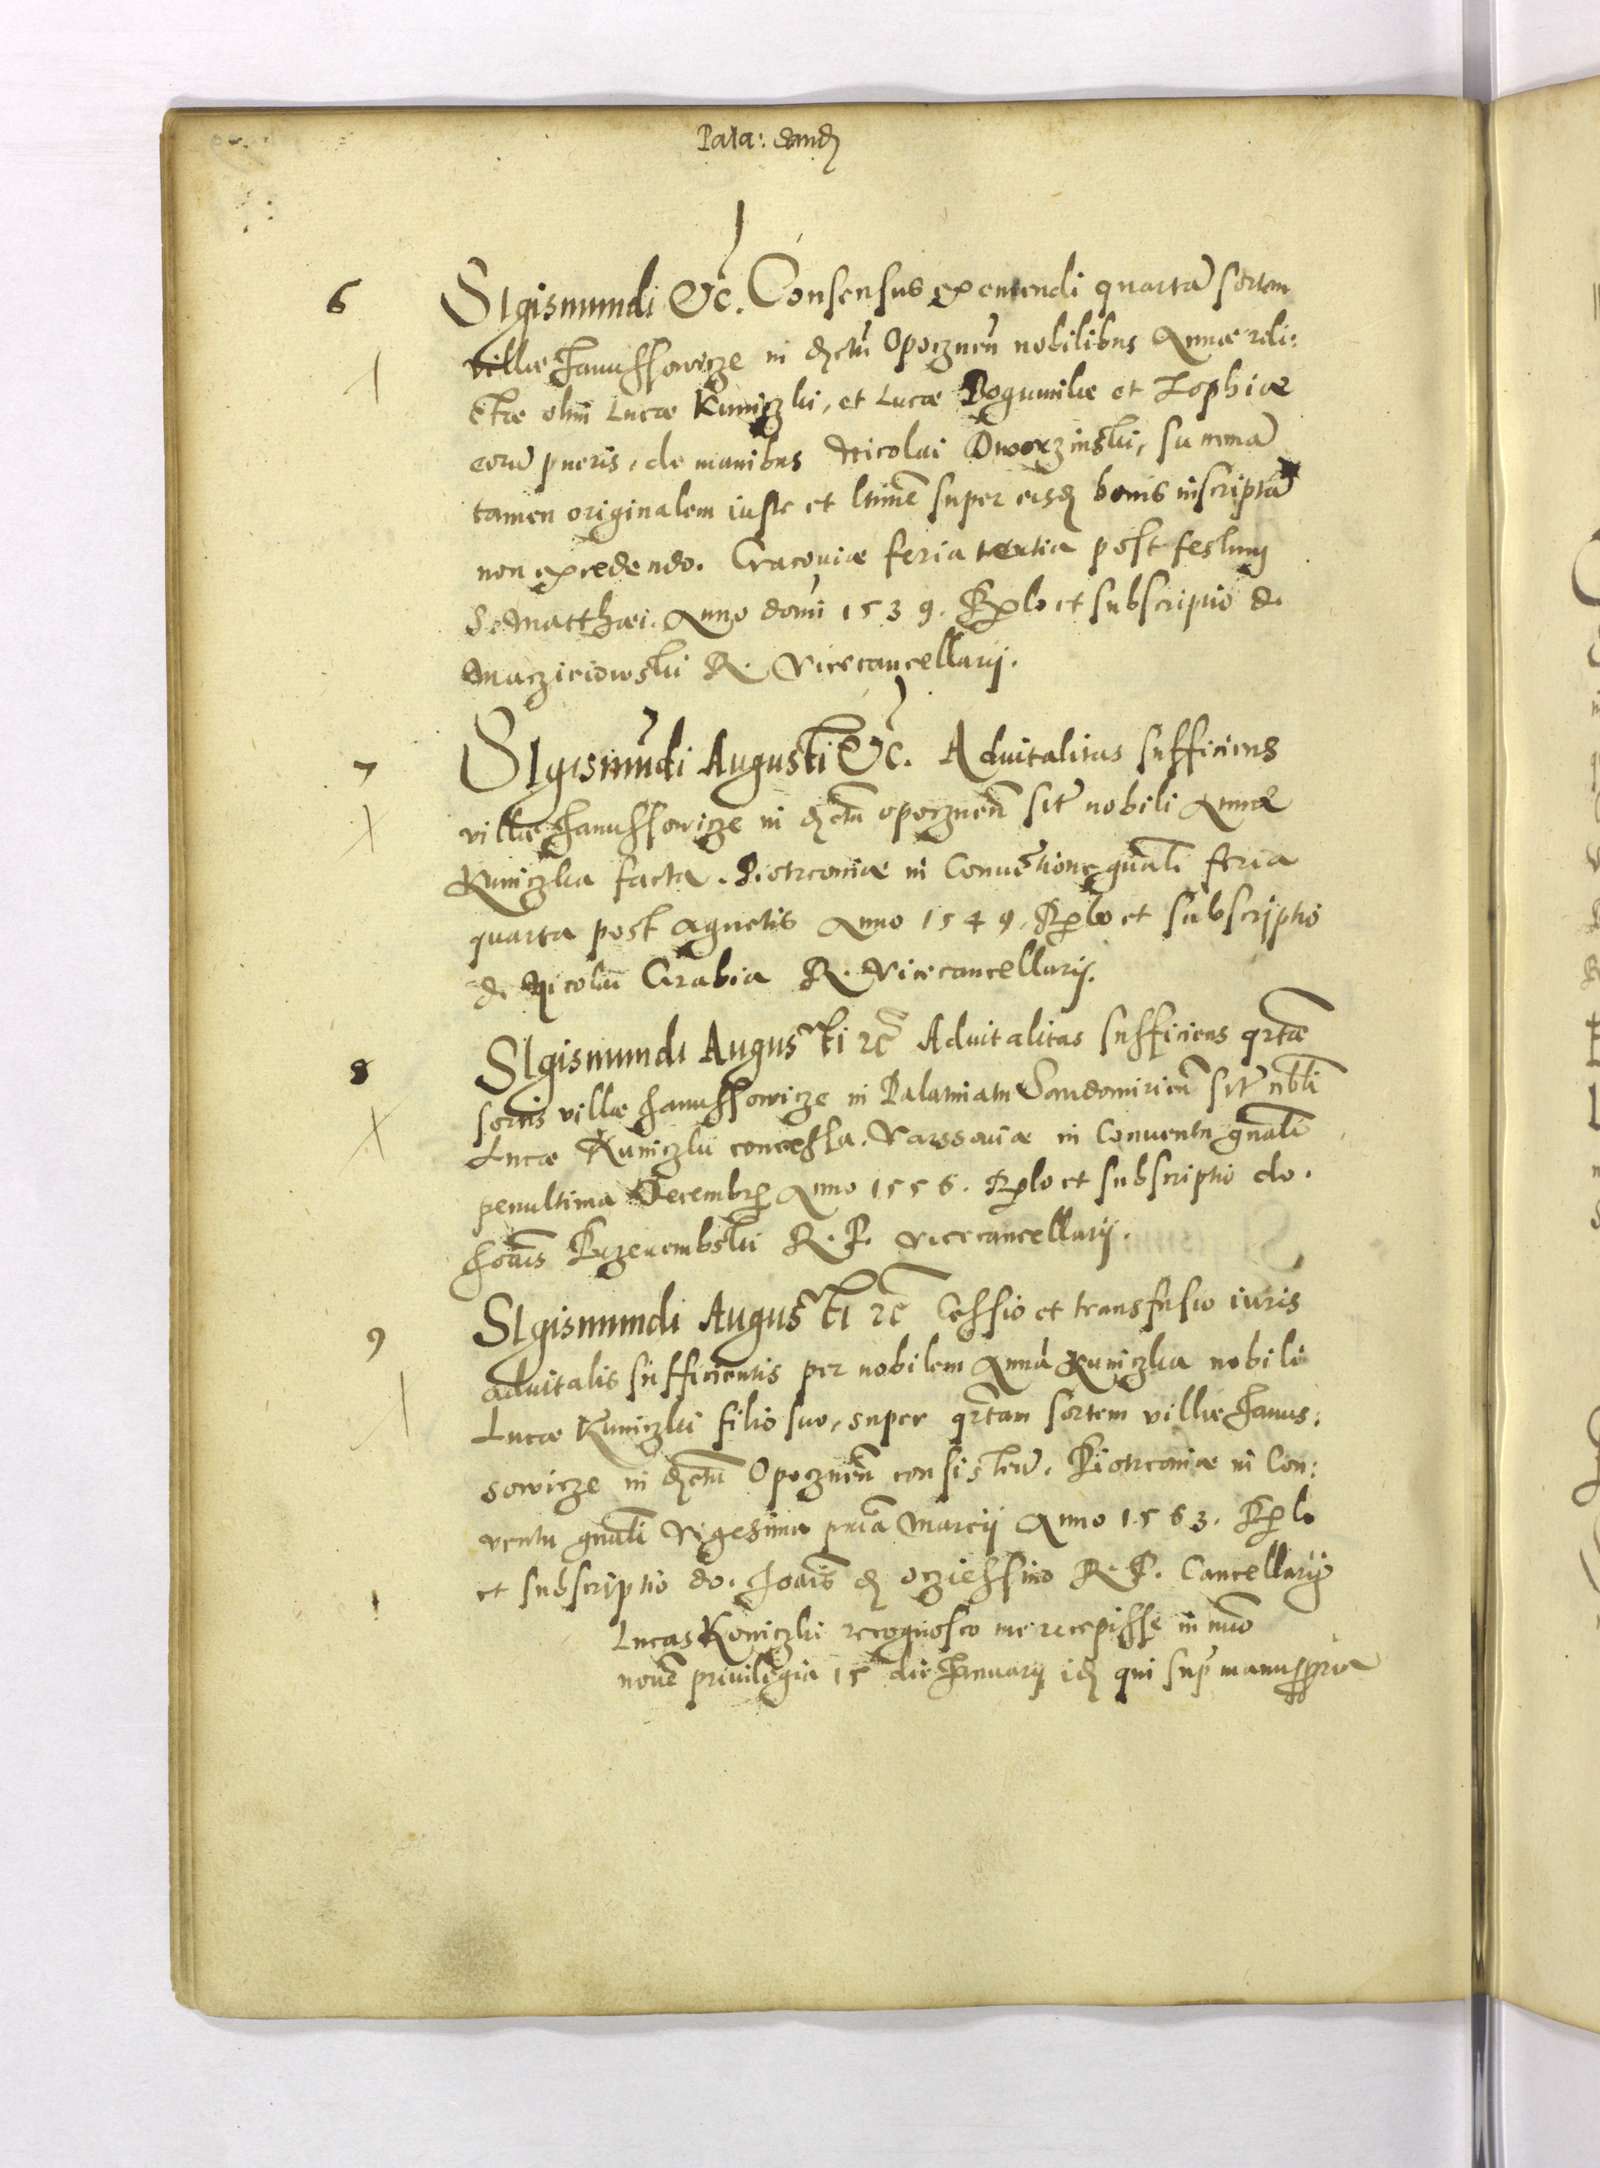 Pala: Sand
6
Sigismundi &c. Consensus exemendi quartã sortem
villæ Janussowicze in distrû Opocznen nobilibus Annæ reli:
ctæ olim Lucæ Kuniczki, et Lucæ Bogumilæ et Zophiæ
eorũ pueris, de manibus Nicolai Dworzinski, summã
tamen originalem iuste et ltimẽ super eisd bonis inscriptã
non excedendo. Cracoviæ feria tertia post festum
S. Matthæi. Anno domi 1539. Rlo et subscriptio d.
Macziciowski R. Vicecancellarij.
7
Sigismũdi Augusti &c. Aduitalitas sufficiens
villæ Janussowicze in distrũ opocznen sit nobili Annæ
Kuniczka facta. Piotrcouiæ in Conuẽtione gnali feria
quarta post Agnetis Anno 1549. Rlo et subscriptio
d. Nicolai Grabia R. Vicecancellarij.
8
Sigismundi Augusti rc Aduitalitas sufficiens qrtæ
sortis villæ Janussowicze in Palatinatu Sandomirien sit nbli
Lucæ Kuniczki concessa. Varssouiæ in Conuentu gnali
penultima Decembr Anno 1556. Rlo et subscriptio do.
Joãis Przerembski R. P. vicecancellarij.
9
Sigismundi Augusti rc Cessio et transfusio iuris
aduitalis sufficientis per nobilem Annã Kuniczka nobili
Lucæ Kuniczki filio suo, super qrtam sortem villæ Janus:
sowicze in distrũ Opocznen consisten. Piotrcouiæ in Con:
ventu gnali Vigesima prima Marcij Anno 1563. Rlo
et subscriptio do. Joãis d ocziessino R. P. Cancellarij
Lucas Koniczki recognosco me recepisse in nuo
nouẽ priuilegia 15 die Januarij id qui sup manu ppria